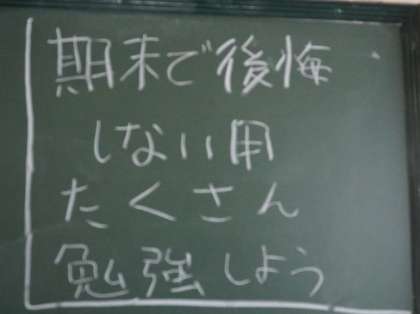 期末で後悔
しない用
たくさん
勉強しよう